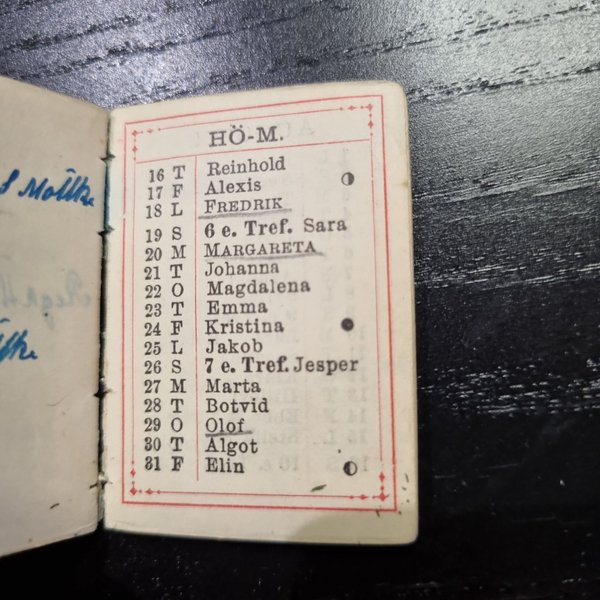 HÖ-M.
16 T Reinhold
17 F Alexis
18 L FREDRIK
19 S 6 e. Tref. Sara
20 M MARGARETA
21 T Johanna
22 O Magdalena
23 T Emma
24 F Kristina
25 L Jakob
26 S 7 e. Tref. Jesper
27 M Marta
28 T Botvid
29 O Olof
30 T Algot
31 F Elin
Moltke